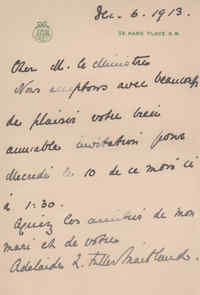 Dec. 6. 1913.
39 MARK PLACE S.W.
Cher M. le Ministre
Nous acceptons avec beaucoup
de plaisir votre bien
aimable invitation pour
Mecredi le 10 de ce mois ci
à 1:30.
Agréez les amitiés de mon
mari et de votre
Adelaide L. Fuller Maitland.